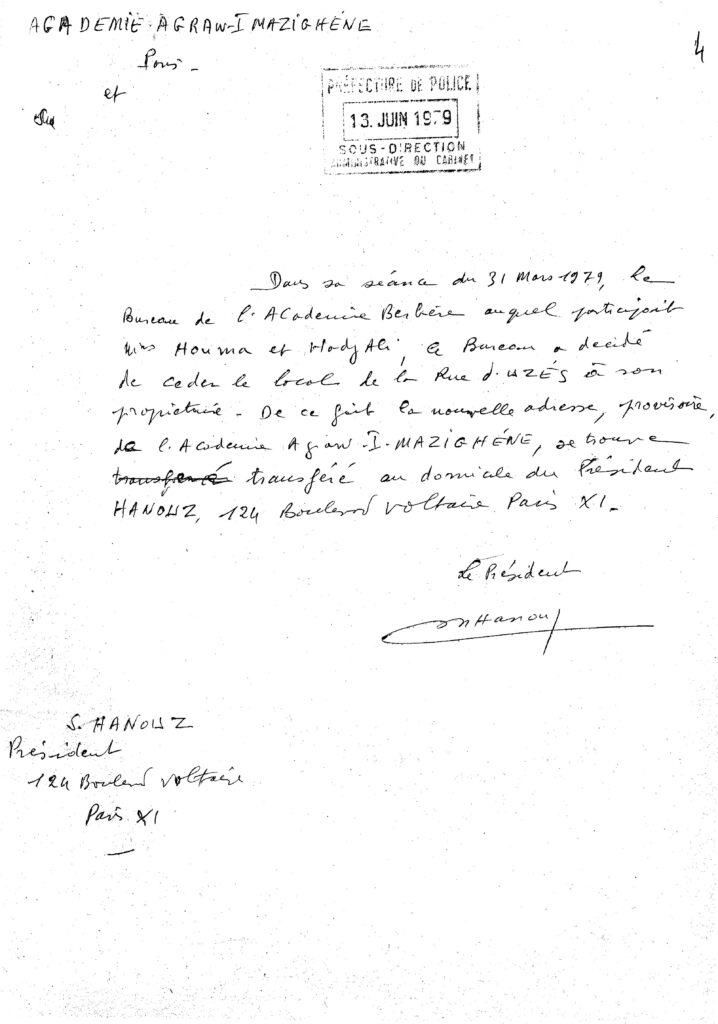 ACADEMIE AGRAW-IMAZIGHÉNE
4
Paris -
et
PRÉFECTURE DE POLICE
13. JUIN 1979
SOUS-DIRECTION
ADMINISTRATIVE DU CABINET
Dans sa séance du 31 Mars 1979, le
Bureau de l'Academie Berbère auquel participait
Houma et HadjAli, le Bureau a decidé
de ceder le local de la Rue d'UZÉS à son
propietaire - De ce fait la nouvelle adresse, provisoire,
de l'Academie Agraw-I-MAZIGHÉNE, se trouve
transféré au domicile du Président
HANOUZ, 124 Boulevard Voltaire Paris XI.
Le Président
S. HANOUZ
Président
124 Boulevard Voltaire
Paris XI